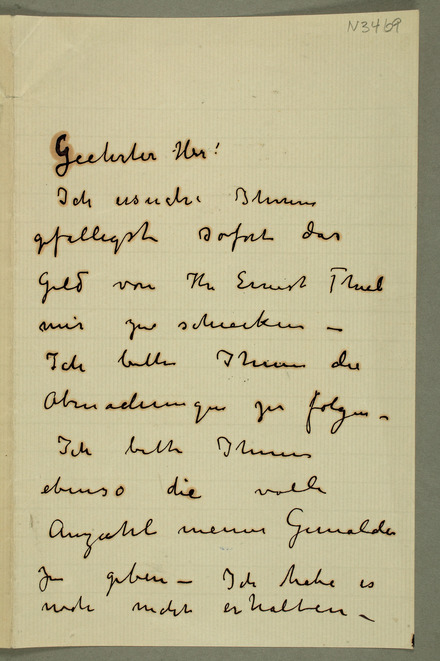 N3469
Geehrter Herr!
Ich ersuche Ihnen
gefelligst sofort das
Geld von Hr Ernest Thiel
mir zu schicken –
Ich bitte Ihnen die
Abmachungen zu folgen –
Ich bitte Ihnen
ebenso die volle
Anzahl meiner Gemälde
zu geben – Ich habe es
noch nicht erhalten –